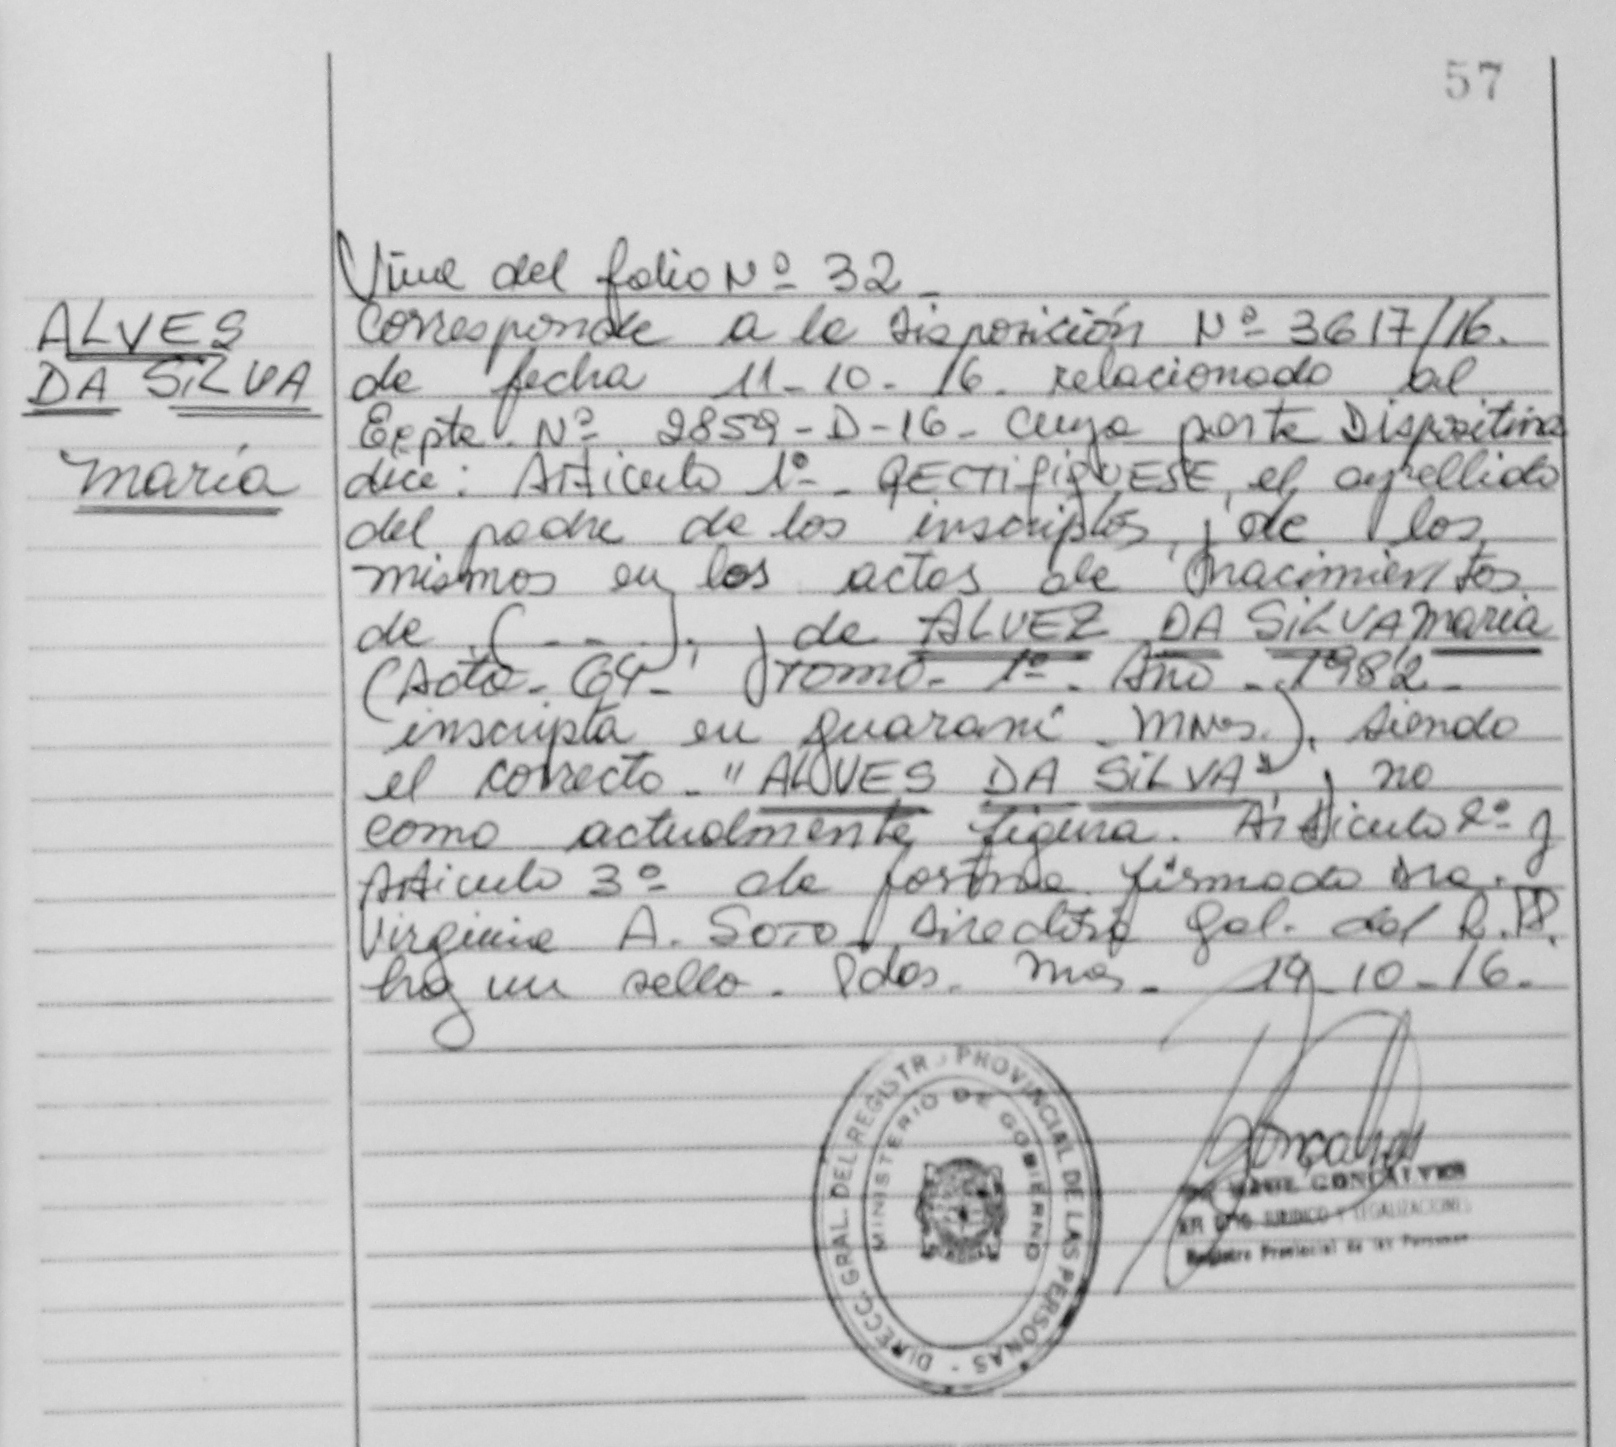 57
Viene del folio Nº 32_
ALVES
DA SILVA
María
Corresponde a la Disposición Nº 3617/16.
de fecha 11-10-16. relacionado al
Expte. Nº 2859-D-16- Cuya parte Dispositiva
dice: Artículo 1º_ RECTIFIQUESE, el apellido
del padre de los inscriptos, y de los
mismos en las actas de nacimientos
de (----)., y de ALVEZ DA SILVA María
(Acta- 64- Tomo- 1º- Año- 1982-
inscripta en Guaraní Mnes.). siendo
el correcto- "ALVES DA SILVA" y no
como actualmente figura. Artículo 2º y
Artículo 3º de forma firmado Dra.
Virginia A. Soto Directora Gral. del R.P.P.
hay un sello. Pdas. Mnes. 19-10-16.
DIRECC. GRAL. DEL REGISTR. PROVINCIAL DE LAS PERSONAS -
MINISTERIO DE GOBIERNO
GONCALVES
JURIDICO Y LEGALIZACIONES
Registro Provincial de las Personas